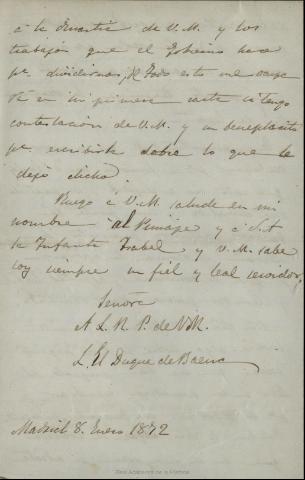 á la Dinastía de V.M. y los
trabajos que el Gobierno hace
pa. dividirnos, de todo esto me ocupa
ré en mi primera carta si tengo
contestacion de V.M. y su beneplácito
pa. escribirle sobre lo que le
dejo dicho.
Ruego á V.M. salude en mi
nombre al Príncipe y á S.A.
la Infanta Isabel y V.M. sabe
soy siempre su fiel y leal servidor,
Señora
A L. R. P. de V.M.
El Duque de Baena
Madrid 8. Enero 1872
Real Academia de la Historia